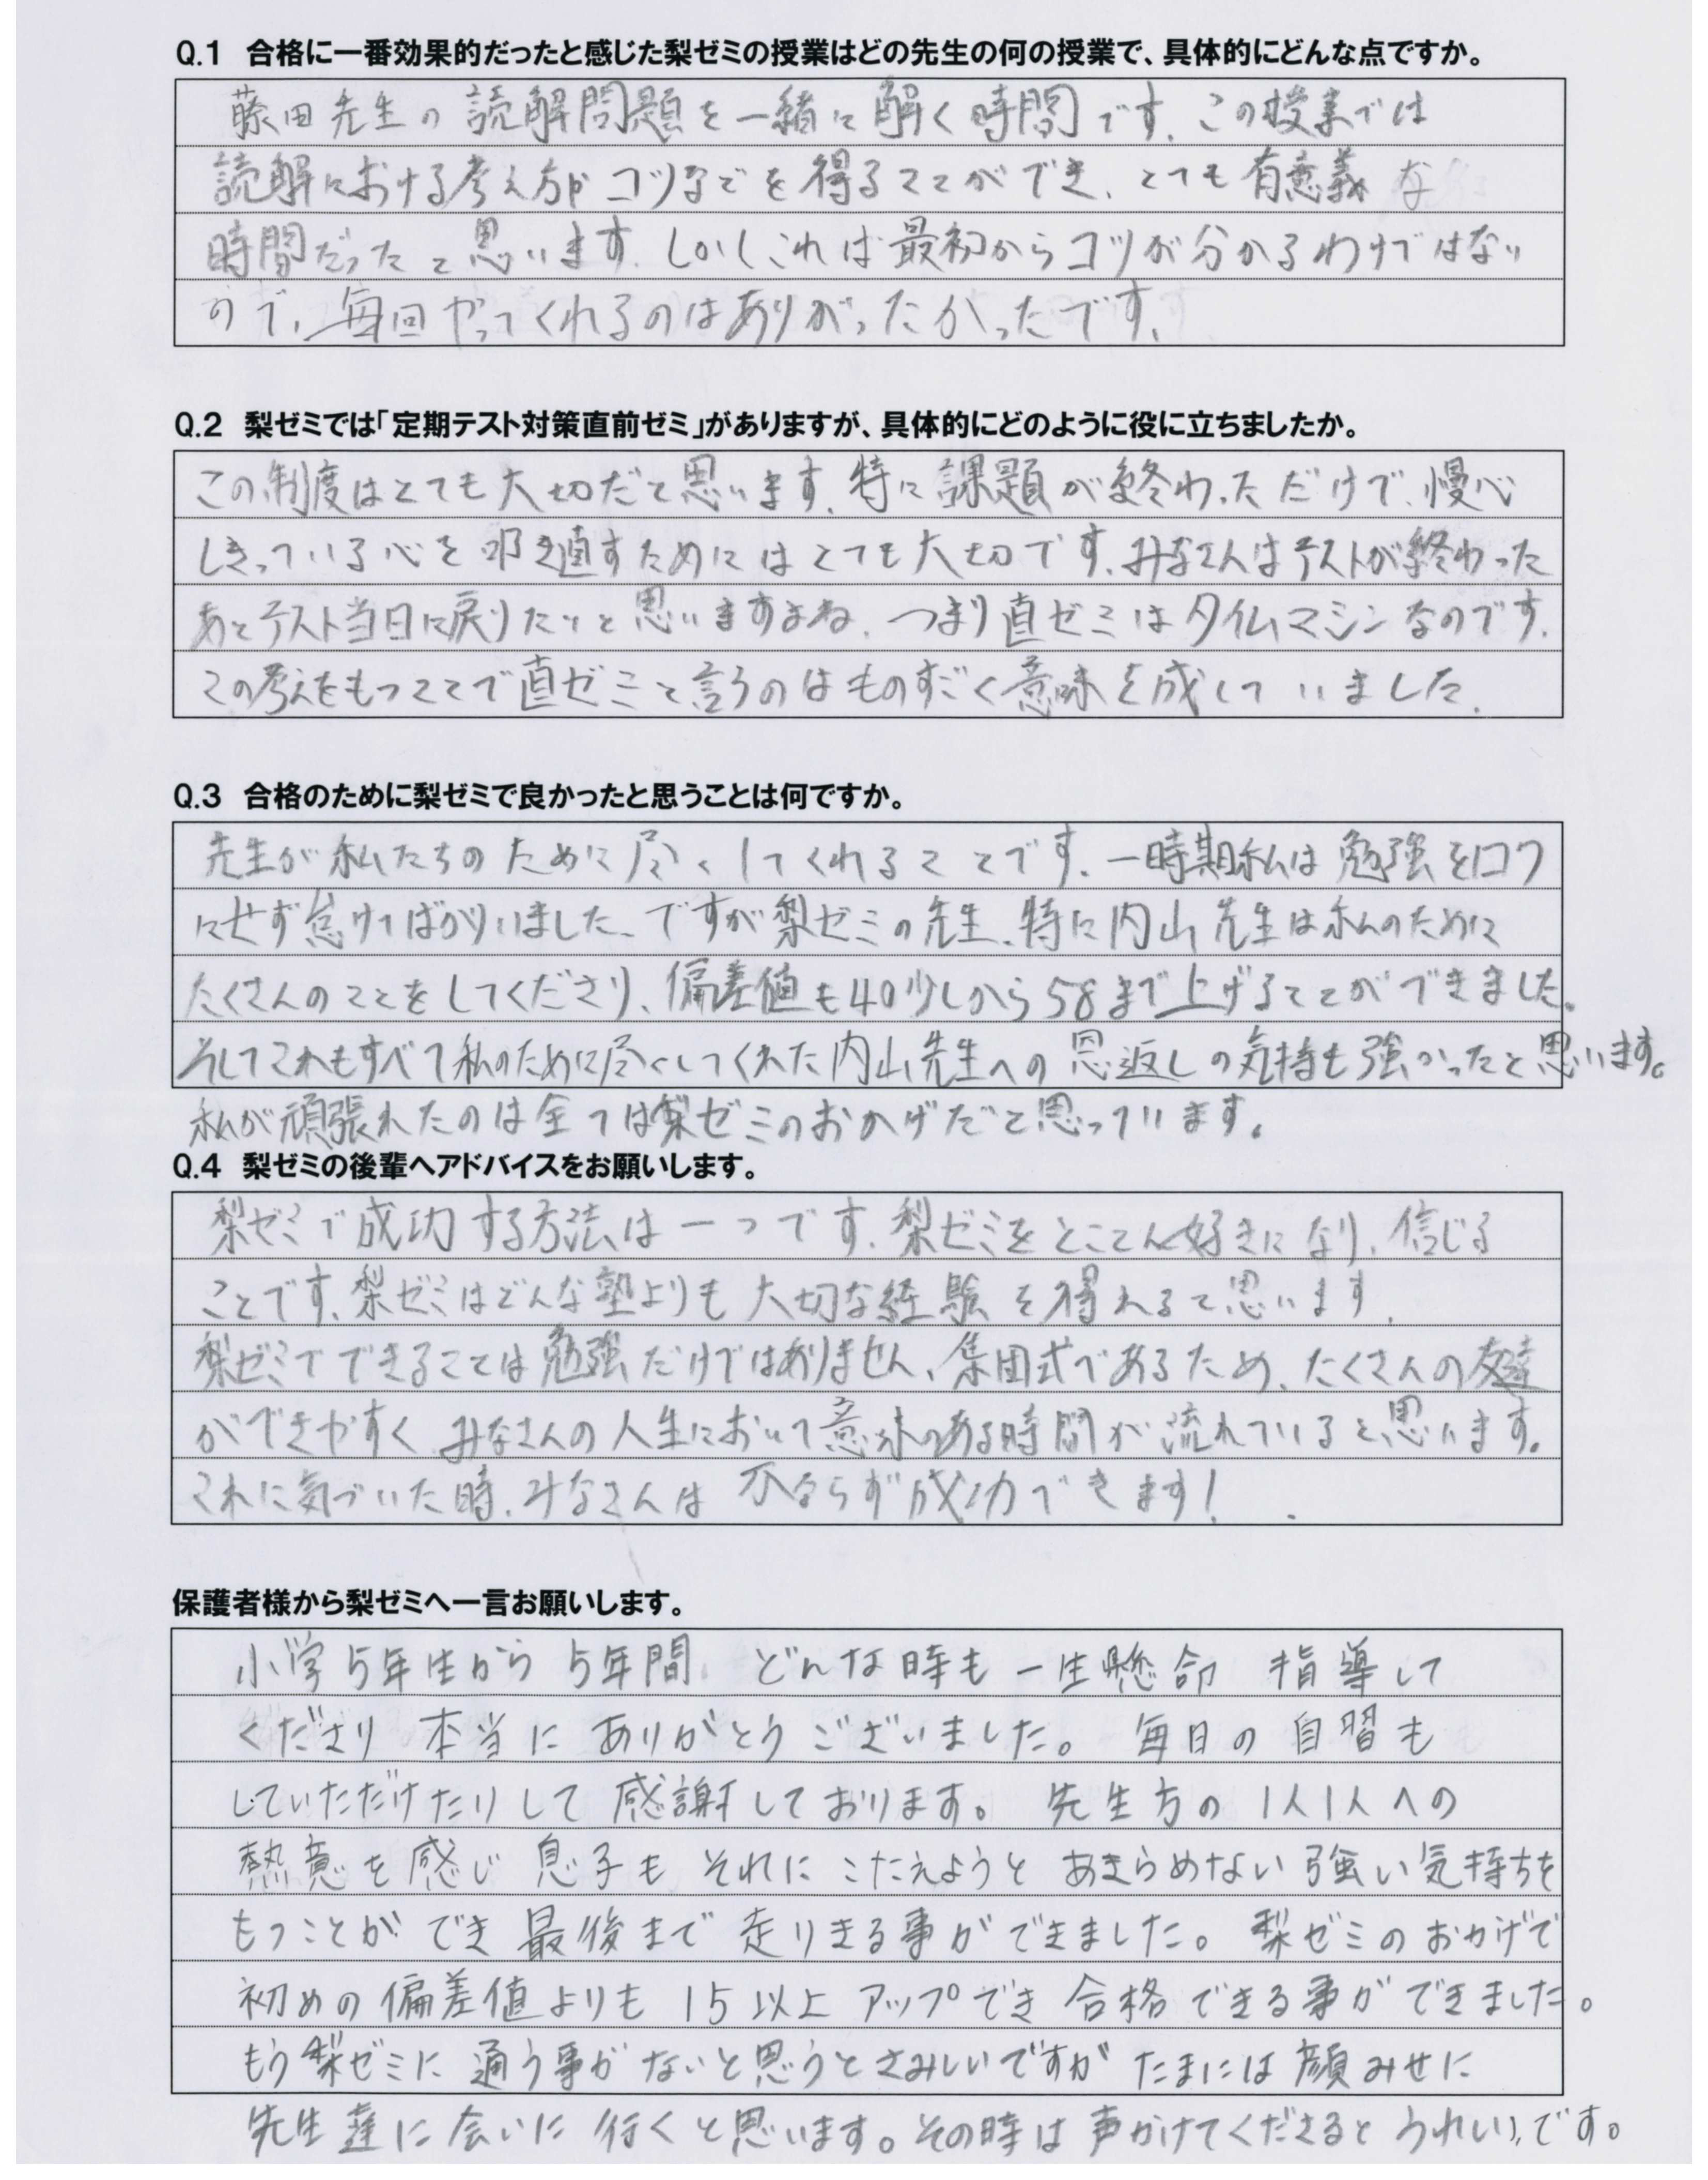 Q.1 合格に一番効果的だったと感じた梨ゼミの授業はどの先生の何の授業で、具体的にどんな点ですか。
藤田先生の読解問題を一緒に解く時間です。この授業では
読解における考え方やコツなどを得ることができ、とても有意義な
時間だったと思います。しかしこれは最初からコツが分かるわけではない
ので、毎回やってくれるのはありがったかったです。
Q.2 梨ゼミでは「定期テスト対策直前ゼミ」がありますが、具体的にどのように役に立ちましたか。
この制度はとても大切だと思います。特に課題が終わっただけで、慢心
しきっている心を叩き直すためにはとても大切です。みなさんはテストが終わった
あとテスト当日に戻りたいと思いますよね。つまり直ゼミはタイムマシンなのです。
この考えをもつことで直ゼミと言うのはものすごく意味を成していました。
Q.3 合格のために梨ゼミで良かったと思うことは何ですか。
先生が私たちのために尽くしてくれることです。一時期私は勉強をロク
にせず怠けてばかりいました。ですが梨ゼミの先生、特に内山先生は私のために
たくさんのことをしてくださり、偏差値も40少しから58まで上げることができました。
そしてこれもすべて私のために尽くしてくれた内山先生への恩返しの気持も強かったと思います。
私が頑張れたのは全ては梨ゼミのおかげだと思っています。
Q.4 梨ゼミの後輩へアドバイスをお願いします。
梨ゼミで成功する方法は一つです。梨ゼミをとことん好きになり、信じる
ことです。梨ゼミはどんな塾よりも大切な経験を得れると思います。
梨ゼミでできることは勉強だけではありません、集団式であるため、たくさんの友達
ができやすくみなさんの人生において意味のある時間が流れていると思います。
これに気づいた時、みなさんは必ならず成功できます!
保護者様から梨ゼミへ一言お願いします。
小学5年生から5年間、どんな時も一生懸命 指導して
くださり 本当に ありがとうございました。 毎日の自習も
していただけたりして 感謝しております。 先生方の1人1人への
熱意を感じ 息子も それに こたえようと あきらめない強い気持ちを
もつことが でき 最後まで 走りきる事ができました。 梨ゼミのおかげで
初めの偏差値よりも 15以上 アップでき 合格できる事ができました。
もう梨ゼミに 通う事が ないと思うとさみしいですが たまには顔みせに
先生達に会いに 行くと思います。その時は声かけてくださるとうれしいです。